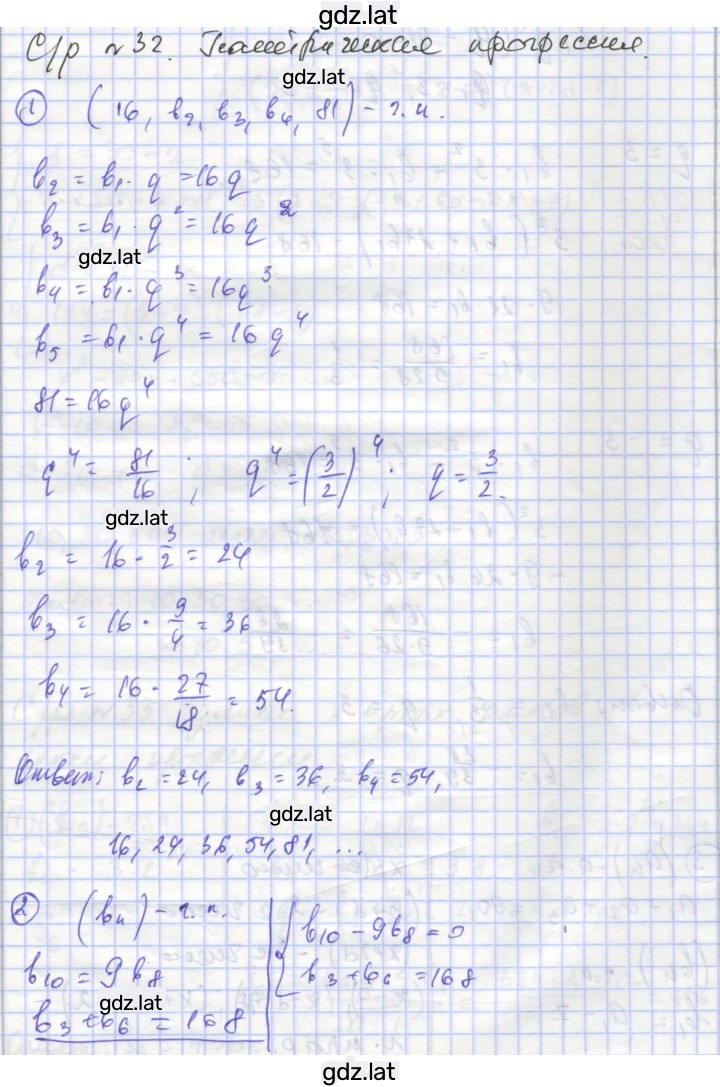 gdz.lat
С/р №32. Геометрическая прогрессия.
gdz.lat
① (16, b₂, b₃, b₄, 81) - г.п.
b₂ = b₁ · q = 16q
b₃ = b₁ · q² = 16q²
gdz.lat
b₄ = b₁ · q³ = 16q³
b₅ = b₁ · q⁴ = 16q⁴
81 = 16q⁴
q⁴ = 81/16 ; q⁴ = (3/2)⁴ ; q = 3/2.
gdz.lat
b₂ = 16 · 3/2 = 24
b₃ = 16 · 9/4 = 36
b₄ = 16 · 27/8 = 54.
Ответ: b₂ = 24, b₃ = 36, b₄ = 54,
gdz.lat
16, 24, 36, 54, 81, ...
② (bₙ) - г.п.
b₁₀ = 9b₈
b₃ + b₆ = 168
{ b₁₀ - 9b₈ = 0
b₃ + b₆ = 168
gdz.lat
gdz.lat